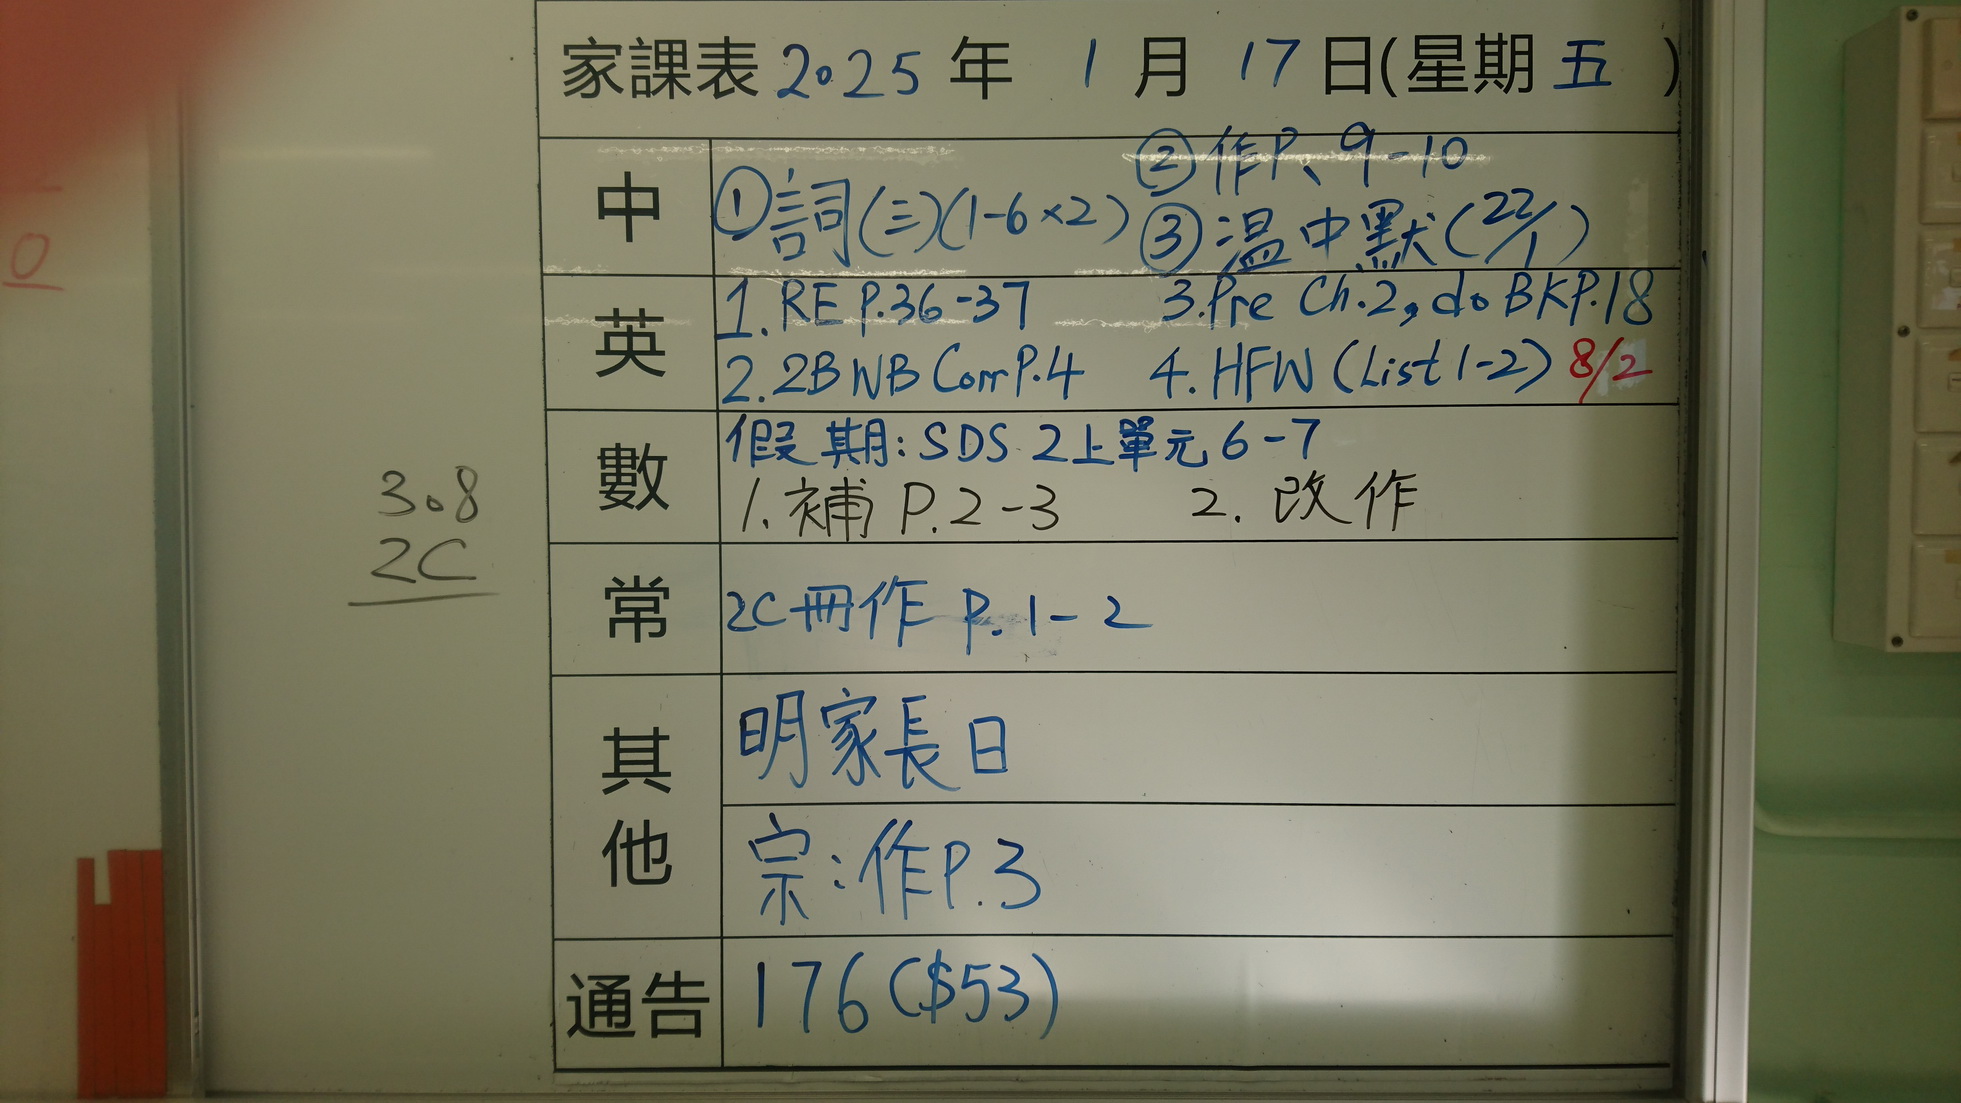 家課表 2025 年 1 月 17 日(星期 五 )
中
①詞(三)(1-6×2)
②作P. 9-10
③溫中默(22/1)
英
1. RE P.36-37
3. Pre Ch.2, do BKP.18
2. 2B WB Corr P.4
4. HFW (List 1-2) 8/2
數
假期: SDS 2上單元 6-7
1. 補 P.2-3
2. 改作
常
2C冊作 P.1-2
其他
明家長日
宗:作P.3
通告
176($53)
3.8
2C
0